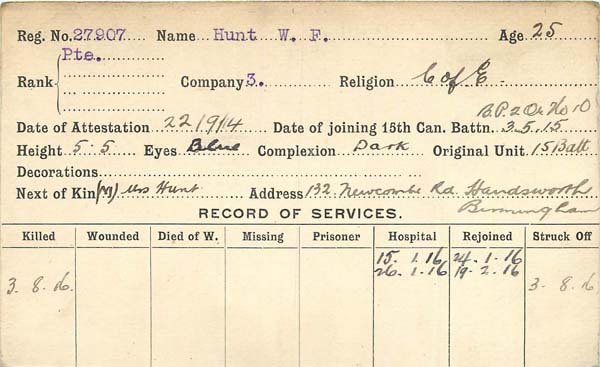 Reg. No. 27907 Name Hunt W. F. Age 25
Pte.
Rank Company 3. Religion C of E -
B.P. 2 Or No 10
Date of Attestation 22/9/14 Date of joining 15th Can. Battn. 3.5.15
Height 5.5 Eyes Blue Complexion Dark Original Unit 15 Batt
Decorations
Next of Kin (M) Mrs Hunt Address 132 Newcombe Rd. Handsworth
Birmingham
RECORD OF SERVICES.
Killed Wounded Died of W. Missing Prisoner Hospital Rejoined Struck Off
15.1.16 24.1.16
26.1.16 19.2.16
3.8.16. 3-8.16